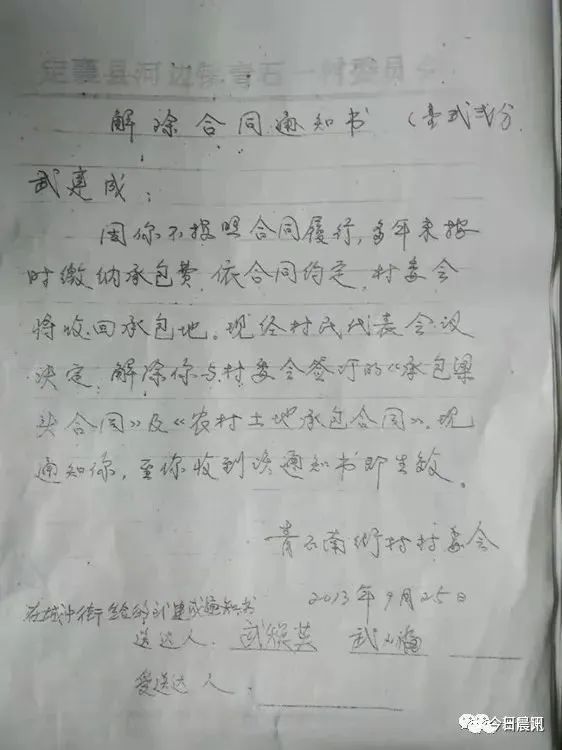 定襄县河边镇青石一村委员会
解除合同通知书 (壹式贰份
武建成:
因你不按照合同履行,多年来按
时缴纳承包费.依合同约定,村委会
将收回承包地。现经村民代表会议
决定:解除你与村委会签订的《承包梁
头合同》及《农村土地承包合同》,现
通知你,至你收到该通知书即生效。
青石南街村村委会
2013年9月25日
在城冲街给的武建成通知书
送达人. 武 武
受送达人.
今日晨讯